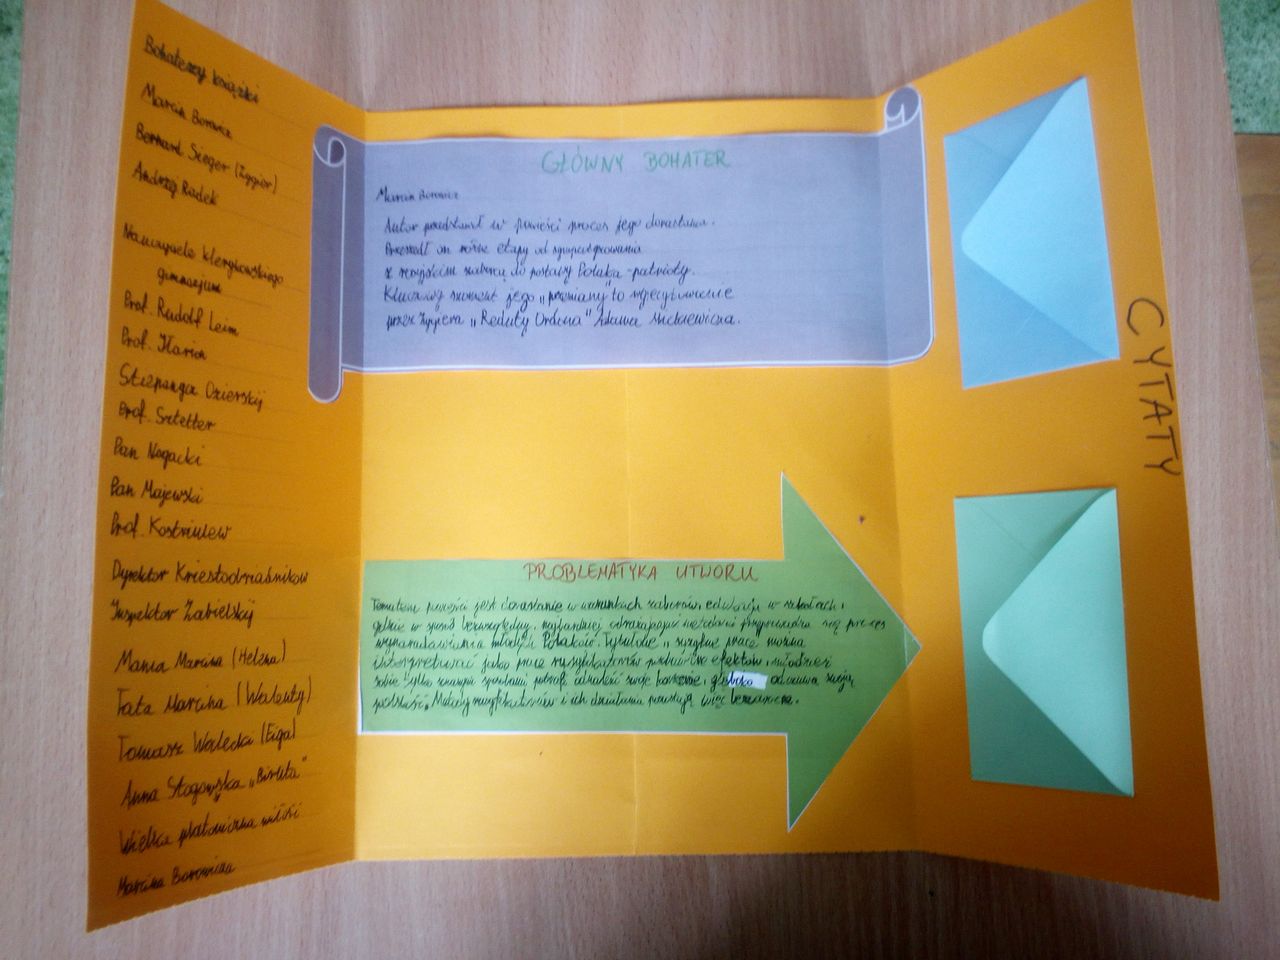 Bohaterzy książki
Marcin Borowicz
Bernard Sieger (Zygier)
Andrzej Radek
Nauczyciele klerykowskiego
gimnazjum
Prof. Rudolf Leim
Prof. Ilarion
Stiepanycz Ozierskij
Prof. Sztetter
Pan Nogacki
Pan Majewski
Prof. Kostriulew
Dyrektor Kriestoobriadnikow
Inspektor Zabielskij
Mama Marcina (Helena)
Tata Marcina (Walenty)
Tomasz Walecki (Figa)
Anna Stogowska „Biruta"
Wielka platoniczna miłość
Marcina Borowicza
GŁÓWNY BOHATER
Marcin Borowicz
Autor przedstawił w powieści proces jego dorastania.
Przeszedł on różne etapy od sympatyzowania
z rosyjskim zaborcą do postawy Polaka-patrioty.
Kluczowy moment jego „przemiany" to wyrecytowanie
przez Zygiera „Reduty Ordona" Adama Mickiewicza.
PROBLEMATYKA UTWORU
Tematem powieści jest dorastanie w warunkach zaborów, edukacja w szkołach,
gdzie w sposób bezwzględny, najbardziej odrażającymi metodami przeprowadza się proces
wynarodawiania młodych Polaków. Tytułowe „syzyfowe prace" można
interpretować jako pracę rusyfikatorów efektów, młodzież
sobie tylko znanymi sposobami potrafi odnaleźć swoje korzenie, głęboko odczuwa swoją
polskość. Metody rusyfikatorów i ich działania pozostają więc bezowocne.
CYTATY